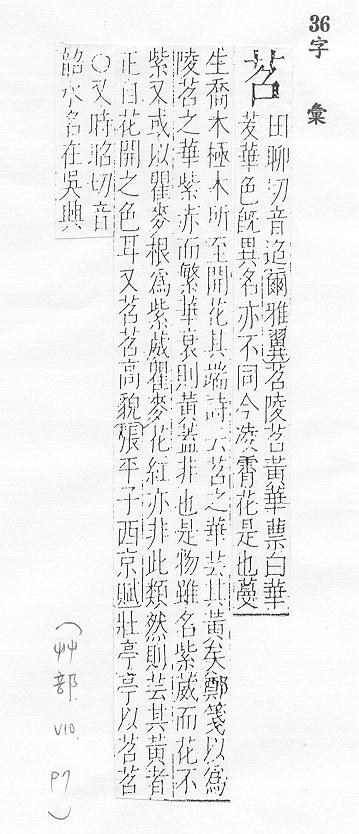 36
字彙
苕
田聊切音迢爾雅翼苕陵苕黃華蔈白華
茇華色旣異名亦不同今凌霄花是也蔓
生喬木極木所至開花其端詩云苕之華芸其黃矣鄭箋以爲
陵苕之華紫赤而繁華衰則黃蓋非也是物雖名紫葳而花不
紫又或以瞿麥根爲紫葳瞿麥花紅亦非此類然則芸其黃者
正自花開之色耳又苕苕高貌張平子西京賦壯亭亭以苕苕
○又時昭切音
韶水名在吳興
(艸部. V10. P7)